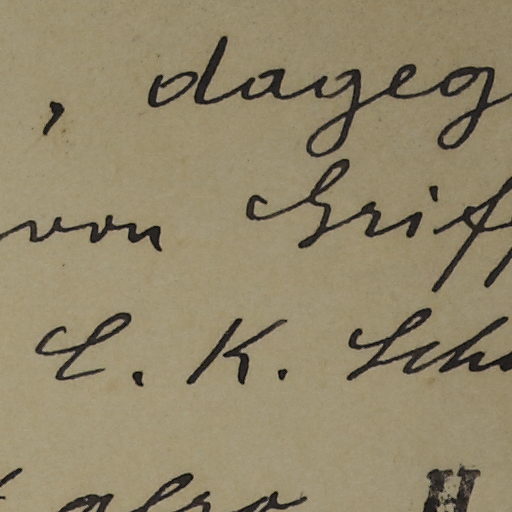 , dageg
von Griff
C. K. Sch
also H